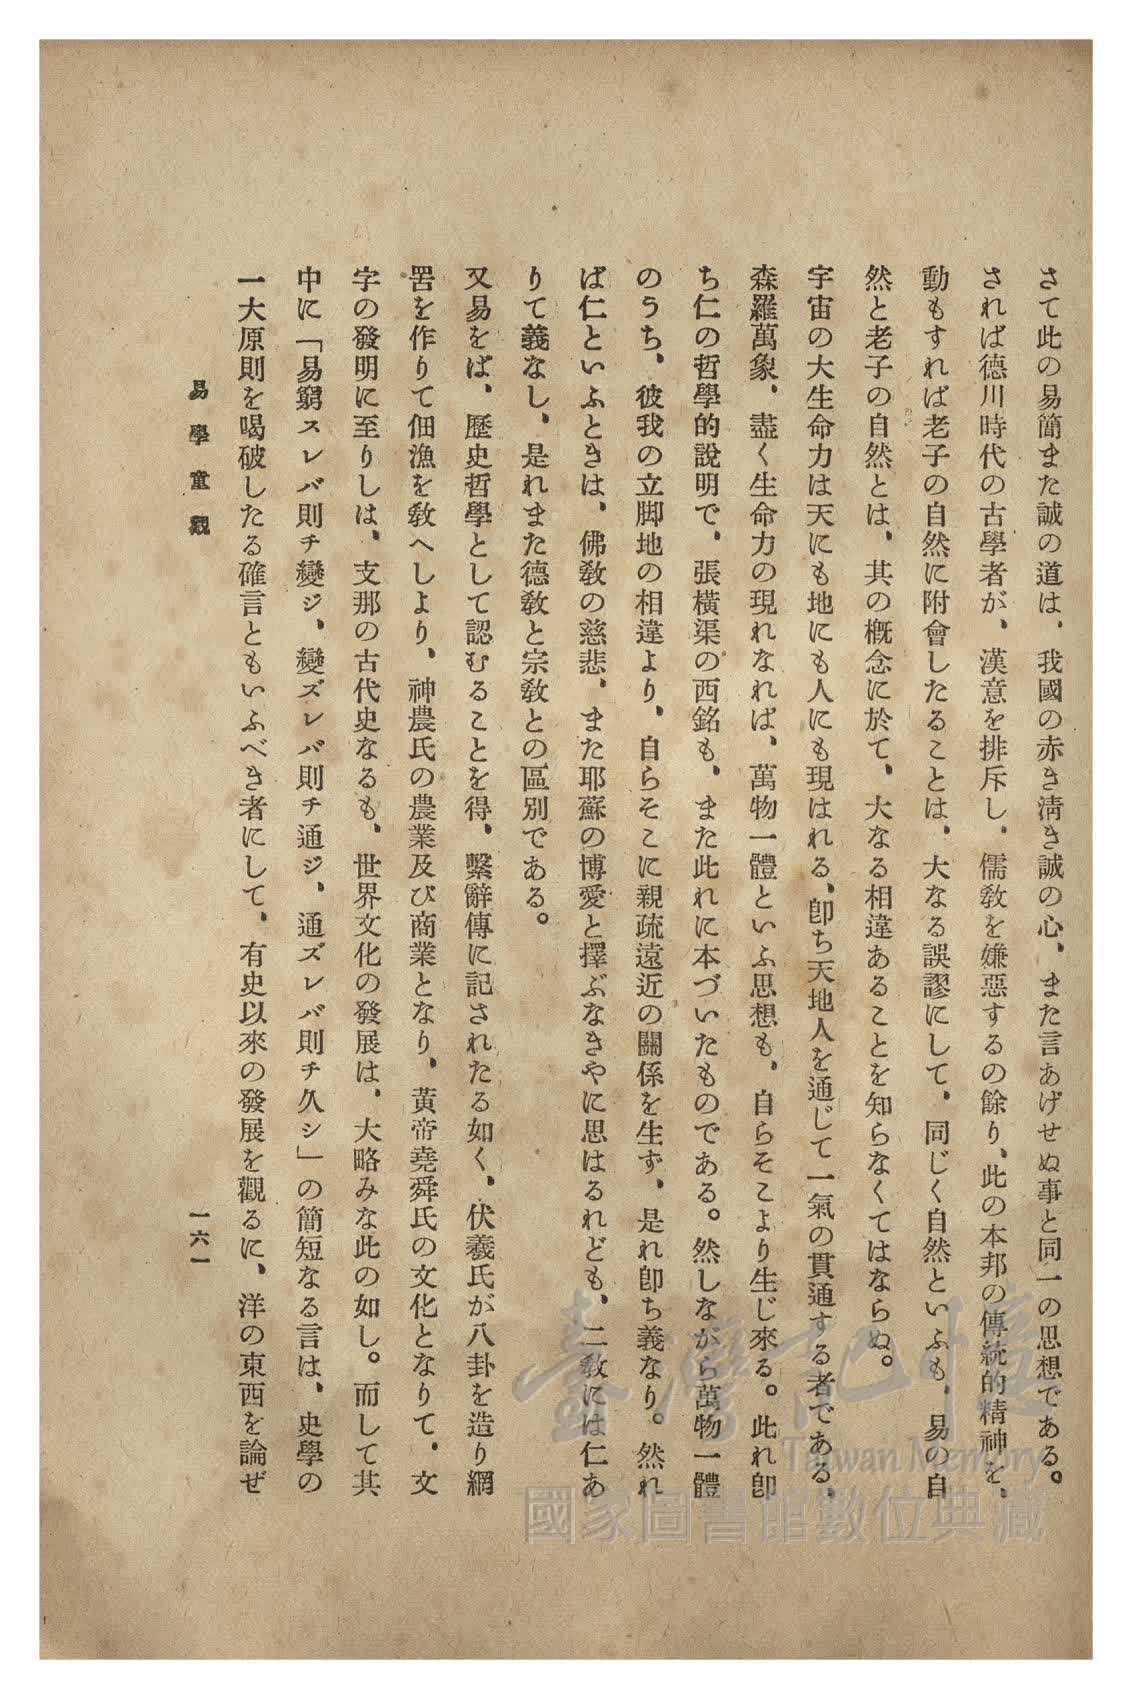 さて此の易簡また誠の道は、我國の赤き淸き誠の心、また言あげせぬ事と同一の思想である。
されば德川時代の古學者が、漢意を排斥し、儒敎を嫌惡するの餘り、此の本邦の傳統的精神を、
動もすれば老子の自然に附會したることは、大なる誤謬にして、同じく自然といふも、易の自
然と老子の自然とは、其の槪念に於て、大なる相違あることを知らなくてはならぬ。
宇宙の大生命力は天にも地にも人にも現はれる、卽ち天地人を通じて一氣の貫通する者である、
森羅萬象、盡く生命力の現れなれば、萬物一體といふ思想も、自らそこより生じ來る。此れ卽
ち仁の哲學的說明で、張橫渠の西銘も、また此れに本づいたものである。然しながら萬物一體
のうち、彼我の立脚地の相違より、自らそこに親疏遠近の關係を生ず、是れ卽ち義なり。然れ
ば仁といふときは、佛敎の慈悲、また耶蘇の博愛と擇ぶなきやに思はるれども、二敎には仁あ
りて義なし、是れまた德敎と宗敎との區別である。
又易をば、歷史哲學として認むることを得、繫辭傳に記されたる如く、伏羲氏が八卦を造り網
罟を作りて佃漁を敎へしより、神農氏の農業及び商業となり、黃帝堯舜氏の文化となりて、文
字の發明に至りしは、支那の古代史なるも、世界文化の發展は、大略みな此の如し。而して其
中に「易窮スレバ則チ變ジ、變ズレバ則チ通ジ、通ズレバ則チ久シ」の簡短なる言は、史學の
一大原則を喝破したる確言ともいふべき者にして、有史以來の發展を觀るに、洋の東西を論ぜ
易學童觀
一六一
臺灣記憶
Taiwan Memory
國家圖書館數位典藏